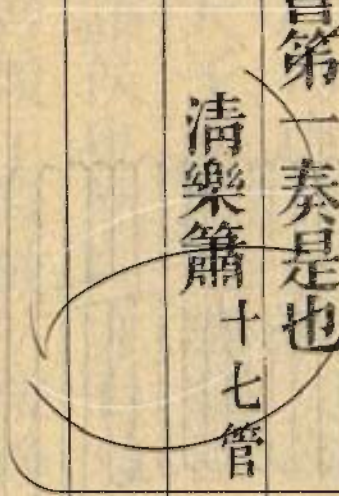 第一奏是也
清樂簫十七管